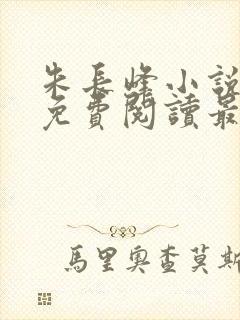 朱長峰小說
免費閱讀最
馬里奧查莫斯